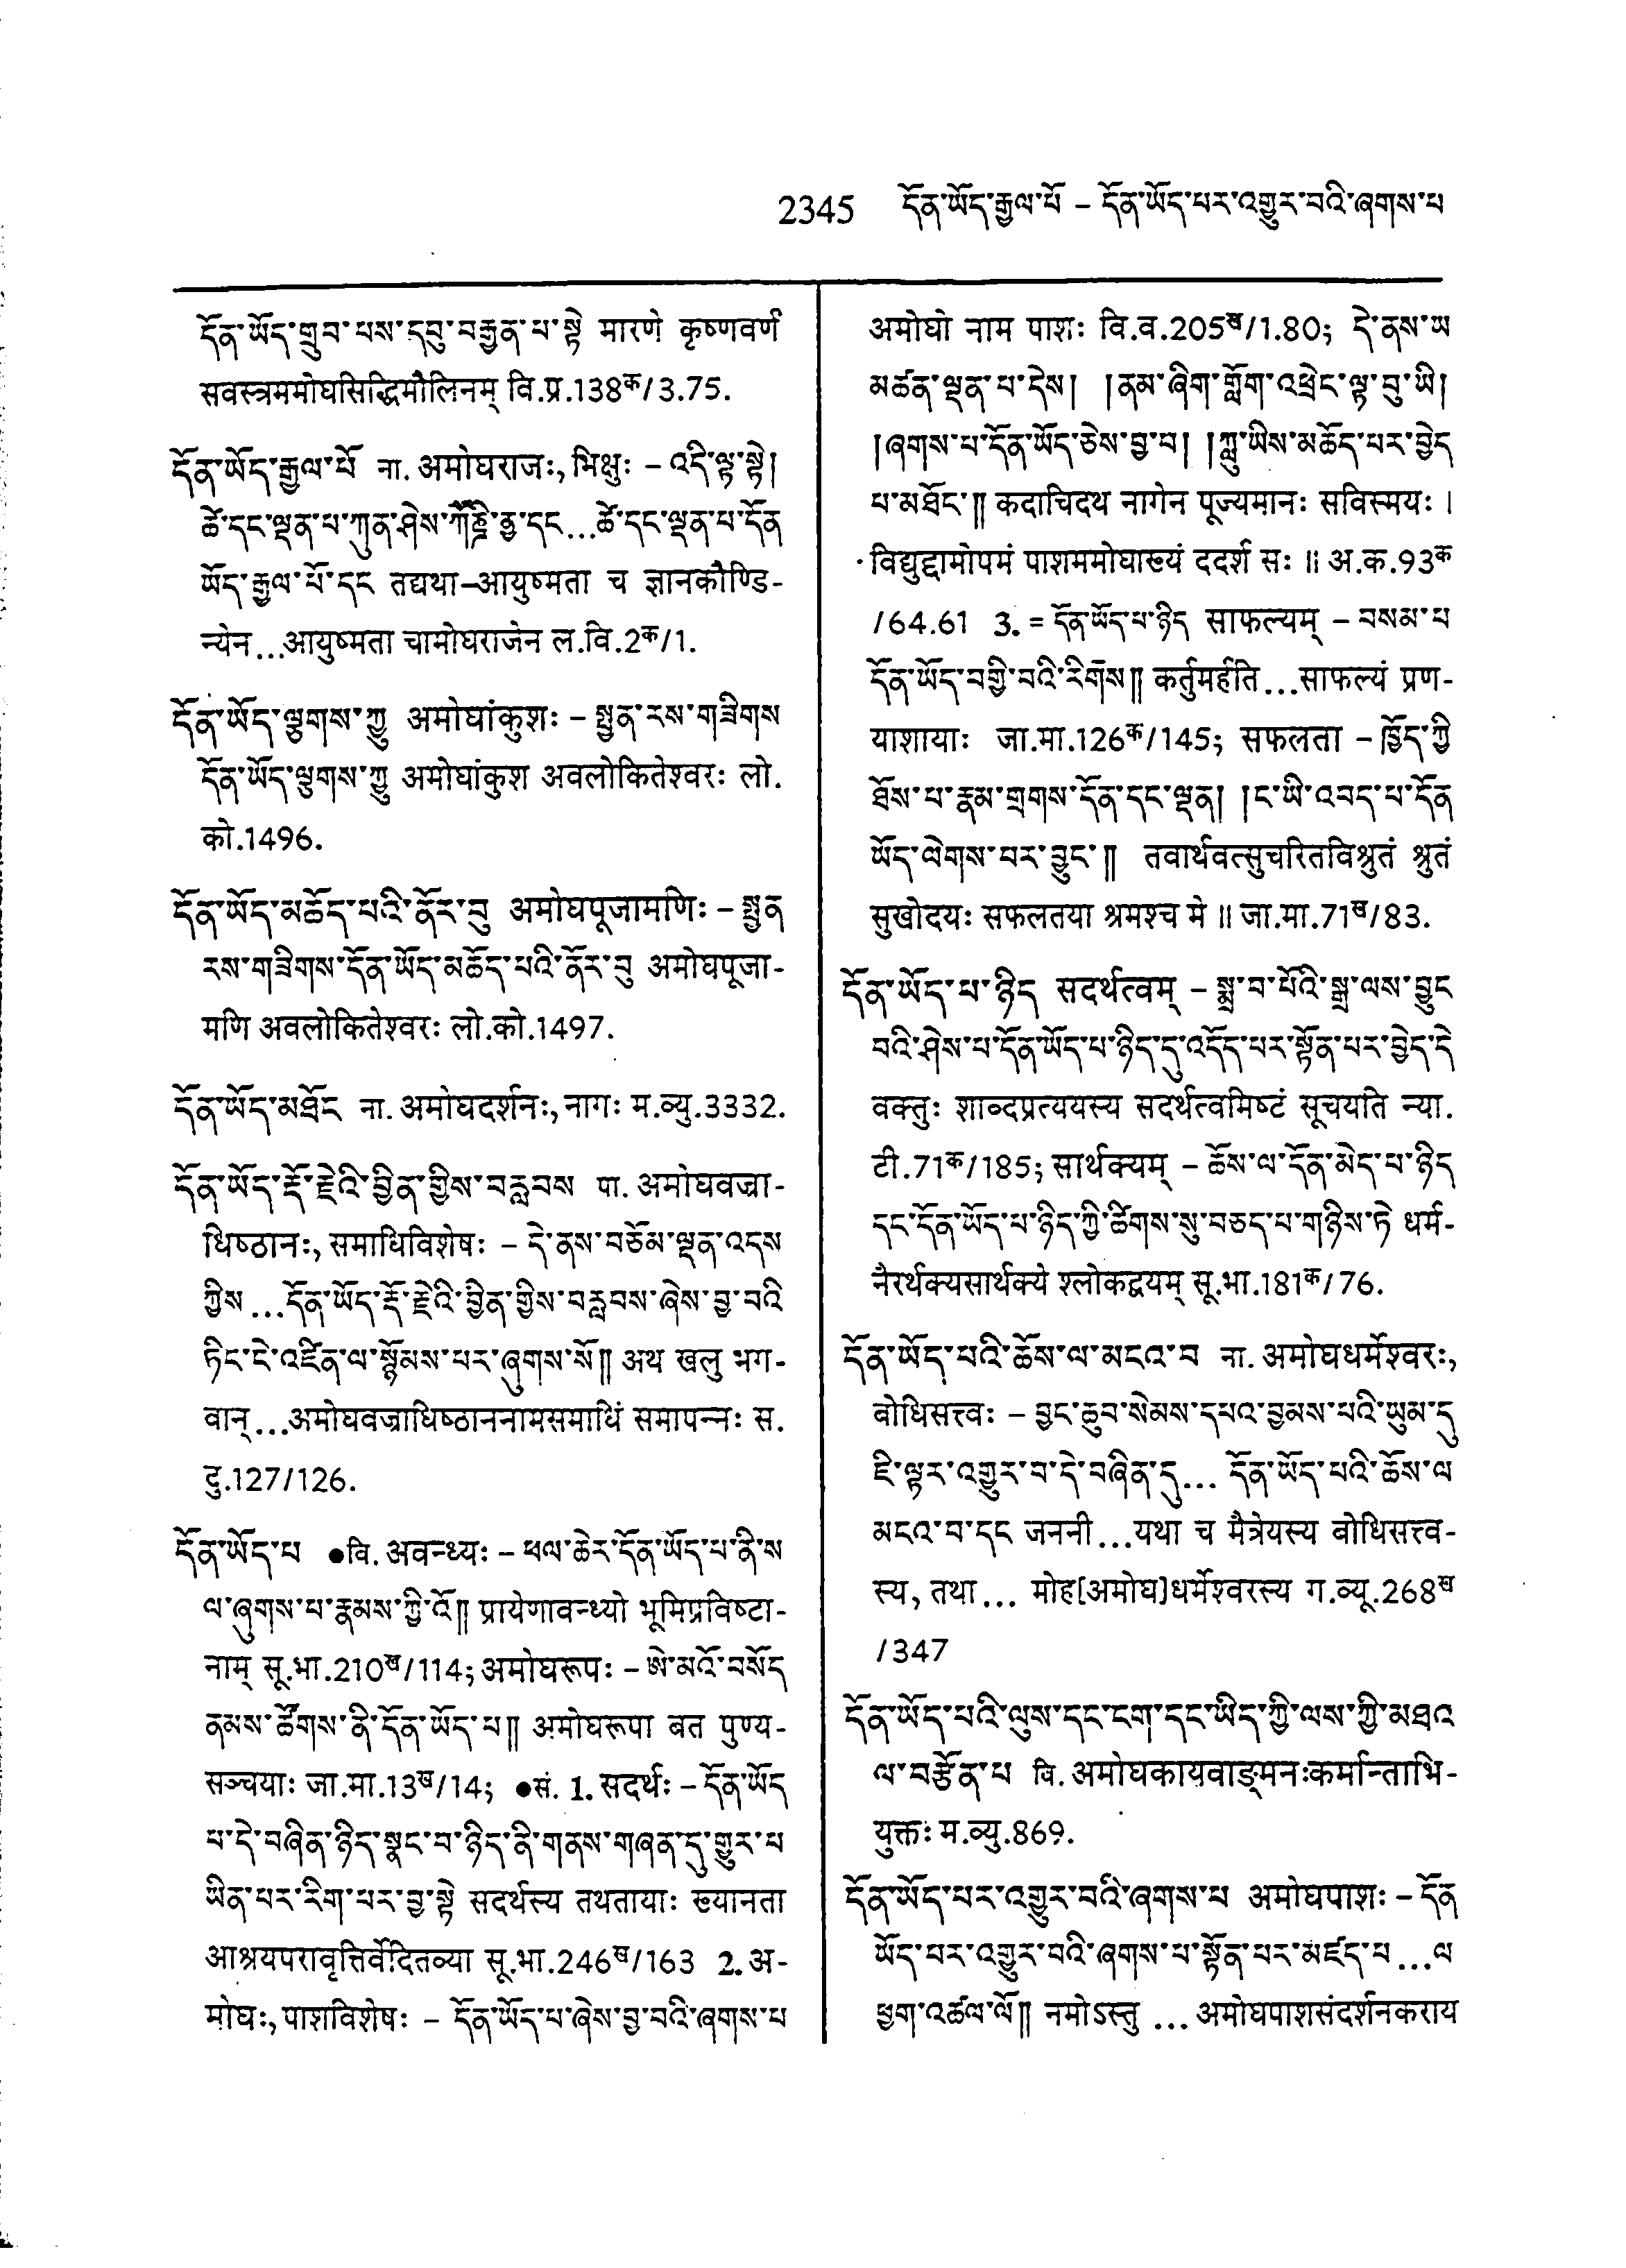 2345 དོན་ཡོད་རྒྱལ་པོ – དོན་ཡོད་པར་འགྱུར་བའི་ཞགས་པ
དོན་ཡོད་གྲུབ་པས་དབུ་བརྒྱན་པ་སྟེ मारणे कृष्णवर्ण
सवस्त्रममोघसिद्धिमौलिनम् वि.प्र.138क/3.75.
དོན་ཡོད་རྒྱལ་པོ ना. अमोघराजः, भिक्षुः – འདི་ལྟ་སྟེ།
ཚེ་དང་ལྡན་པ་ཀུན་ཤེས་ཀཽཎྜི་ནྱ་དང...ཚེ་དང་ལྡན་པ་དོན
ཡོད་རྒྱལ་པོ་དང तद्यथा–आयुष्मता च ज्ञानकौण्डि-
न्येन...आयुष्मता चामोघराजेन ल.वि.2क/1.
དོན་ཡོད་ལྕགས་ཀྱུ अमोघांकुशः – སྤྱན་རས་གཟིགས
དོན་ཡོད་ལྕགས་ཀྱུ अमोघांकुश अवलोकितेश्वरः लो.
को.1496.
དོན་ཡོད་མཆོད་པའི་ནོར་བུ अमोघपूजामणिः – སྤྱན
རས་གཟིགས་དོན་ཡོད་མཆོད་པའི་ནོར་བུ अमोघपूजा-
मणि अवलोकितेश्वरः लो.को.1497.
དོན་ཡོད་མཐོང ना. अमोघदर्शनः, नागः म.व्यु.3332.
དོན་ཡོད་རྡོ་རྗེའི་བྱིན་གྱིས་བརླབས पा. अमोघवज्रा-
धिष्ठानः, समाधिविशेषः – དེ་ནས་བཅོམ་ལྡན་འདས
ཀྱིས ...དོན་ཡོད་རྡོ་རྗེའི་བྱིན་གྱིས་བརླབས་ཞེས་བྱ་བའི
ཏིང་ངེ་འཛིན་ལ་སྙོམས་པར་ཞུགས་སོ༎ अथ खलु भग-
वान् ...अमोघवज्राधिष्ठाननामसमाधिं समापन्नः स.
दु.127/126.
དོན་ཡོད་པ ●वि. अवन्ध्यः – ཕལ་ཆེར་དོན་ཡོད་པ་ནི་ས
ལ་ཞུགས་པ་རྣམས་ཀྱི་འོ༎ प्रायेणावन्ध्यो भूमिप्रविष्टा-
नाम् सू.भा.210ख/114; अमोघरूपः – ཨེ་མའོ་བསོད
ནམས་ཚོགས་ནི་དོན་ཡོད་པ༎ अमोघरूपा बत पुण्य-
सञ्चयाः जा.मा.13ख/14; ●सं. 1. सदर्थः – དོན་ཡོད
པ་དེ་བཞིན་ཉིད་སྣང་བ་ཉིད་ནི་གནས་གཞན་དུ་གྱུར་པ
ཡིན་པར་རིག་པར་བྱ་སྟེ सदर्थस्य तथतायाः ख्यानता
आश्रयपरावृत्तिर्वेदितव्या सू.भा.246ख/163 2. अ-
मोघः, पाशविशेषः – དོན་ཡོད་པ་ཞེས་བྱ་བའི་ཞགས་པ
अमोघो नाम पाशः वि.व.205ख/1.80; དེ་ནས་ཡ
མཚན་ལྡན་པ་དེས། །ནམ་ཞིག་གློག་འཕྲེང་ལྟ་བུ་ཡི།
།ཞགས་པ་དོན་ཡོད་ཅེས་བྱ་བ། །ཀླུ་ཡིས་མཆོད་པར་བྱེད
པ་མཐོང་༎ कदाचिदथ नागेन पूज्यमानः सविस्मयः ।
विद्युद्दामोपमं पाशममोघाख्यं ददर्श सः ॥ अ.क.93क
/64.61 3. = དོན་ཡོད་པ་ཉིད साफल्यम् – བསམ་པ
དོན་ཡོད་བགྱི་བའི་རིགས༎ कर्तुमर्हति...साफल्यं प्रण-
याशायाः जा.मा.126क/145; सफलता – ཁྱོད་ཀྱི
ཐོས་པ་རྣམ་གྲགས་དོན་དང་ལྡན། །ང་ཡི་འབད་པ་དོན
ཡོད་ལེགས་པར་བྱུང་༎ तवार्थवत्सुचरितविश्रुतं श्रुतं
सुखोदयः सफलतया श्रमश्च मे ॥ जा.मा.71ख/83.
དོན་ཡོད་པ་ཉིད सदर्थत्वम् – སྨྲ་བ་པོའི་སྒྲ་ལས་བྱུང
བའི་ཤེས་པ་དོན་ཡོད་པ་ཉིད་དུ་འདོད་པར་སྟོན་པར་བྱེད་དེ
वक्तुः शाब्दप्रत्ययस्य सदर्थत्वमिष्टं सूचयति न्या.
टी.71क/185; सार्थक्यम् – ཆོས་ལ་དོན་མེད་པ་ཉིད
དང་དོན་ཡོད་པ་ཉིད་ཀྱི་ཚིགས་སུ་བཅད་པ་གཉིས་ཏེ धर्म-
नैरर्थक्यसार्थक्ये श्लोकद्वयम् सू.भा.181क/76.
དོན་ཡོད་པའི་ཆོས་ལ་མངའ་བ ना. अमोघधर्मेश्वरः,
बोधिसत्त्वः – བྱང་ཆུབ་སེམས་དཔའ་བྱམས་པའི་ཡུམ་དུ
ཇི་ལྟར་འགྱུར་བ་དེ་བཞིན་དུ... དོན་ཡོད་པའི་ཆོས་ལ
མངའ་བ་དང जननी...यथा च मैत्रेयस्य बोधिसत्त्व-
स्य, तथा... मोह[अमोघ]धर्मेश्वरस्य ग.व्यू.268ख
/347
དོན་ཡོད་པའི་ལུས་དང་ངག་དང་ཡིད་ཀྱི་ལས་ཀྱི་མཐའ
ལ་བརྩོན་པ वि. अमोघकायवाङ्मनःकर्मान्ताभि-
युक्तः म.व्यु.869.
དོན་ཡོད་པར་འགྱུར་བའི་ཞགས་པ अमोघपाशः – དོན
ཡོད་པར་འགྱུར་བའི་ཞགས་པ་སྟོན་པར་མཛད་པ...ལ
ཕྱག་འཚལ་ལོ༎ नमोऽस्तु ... अमोघपाशसंदर्शनकराय